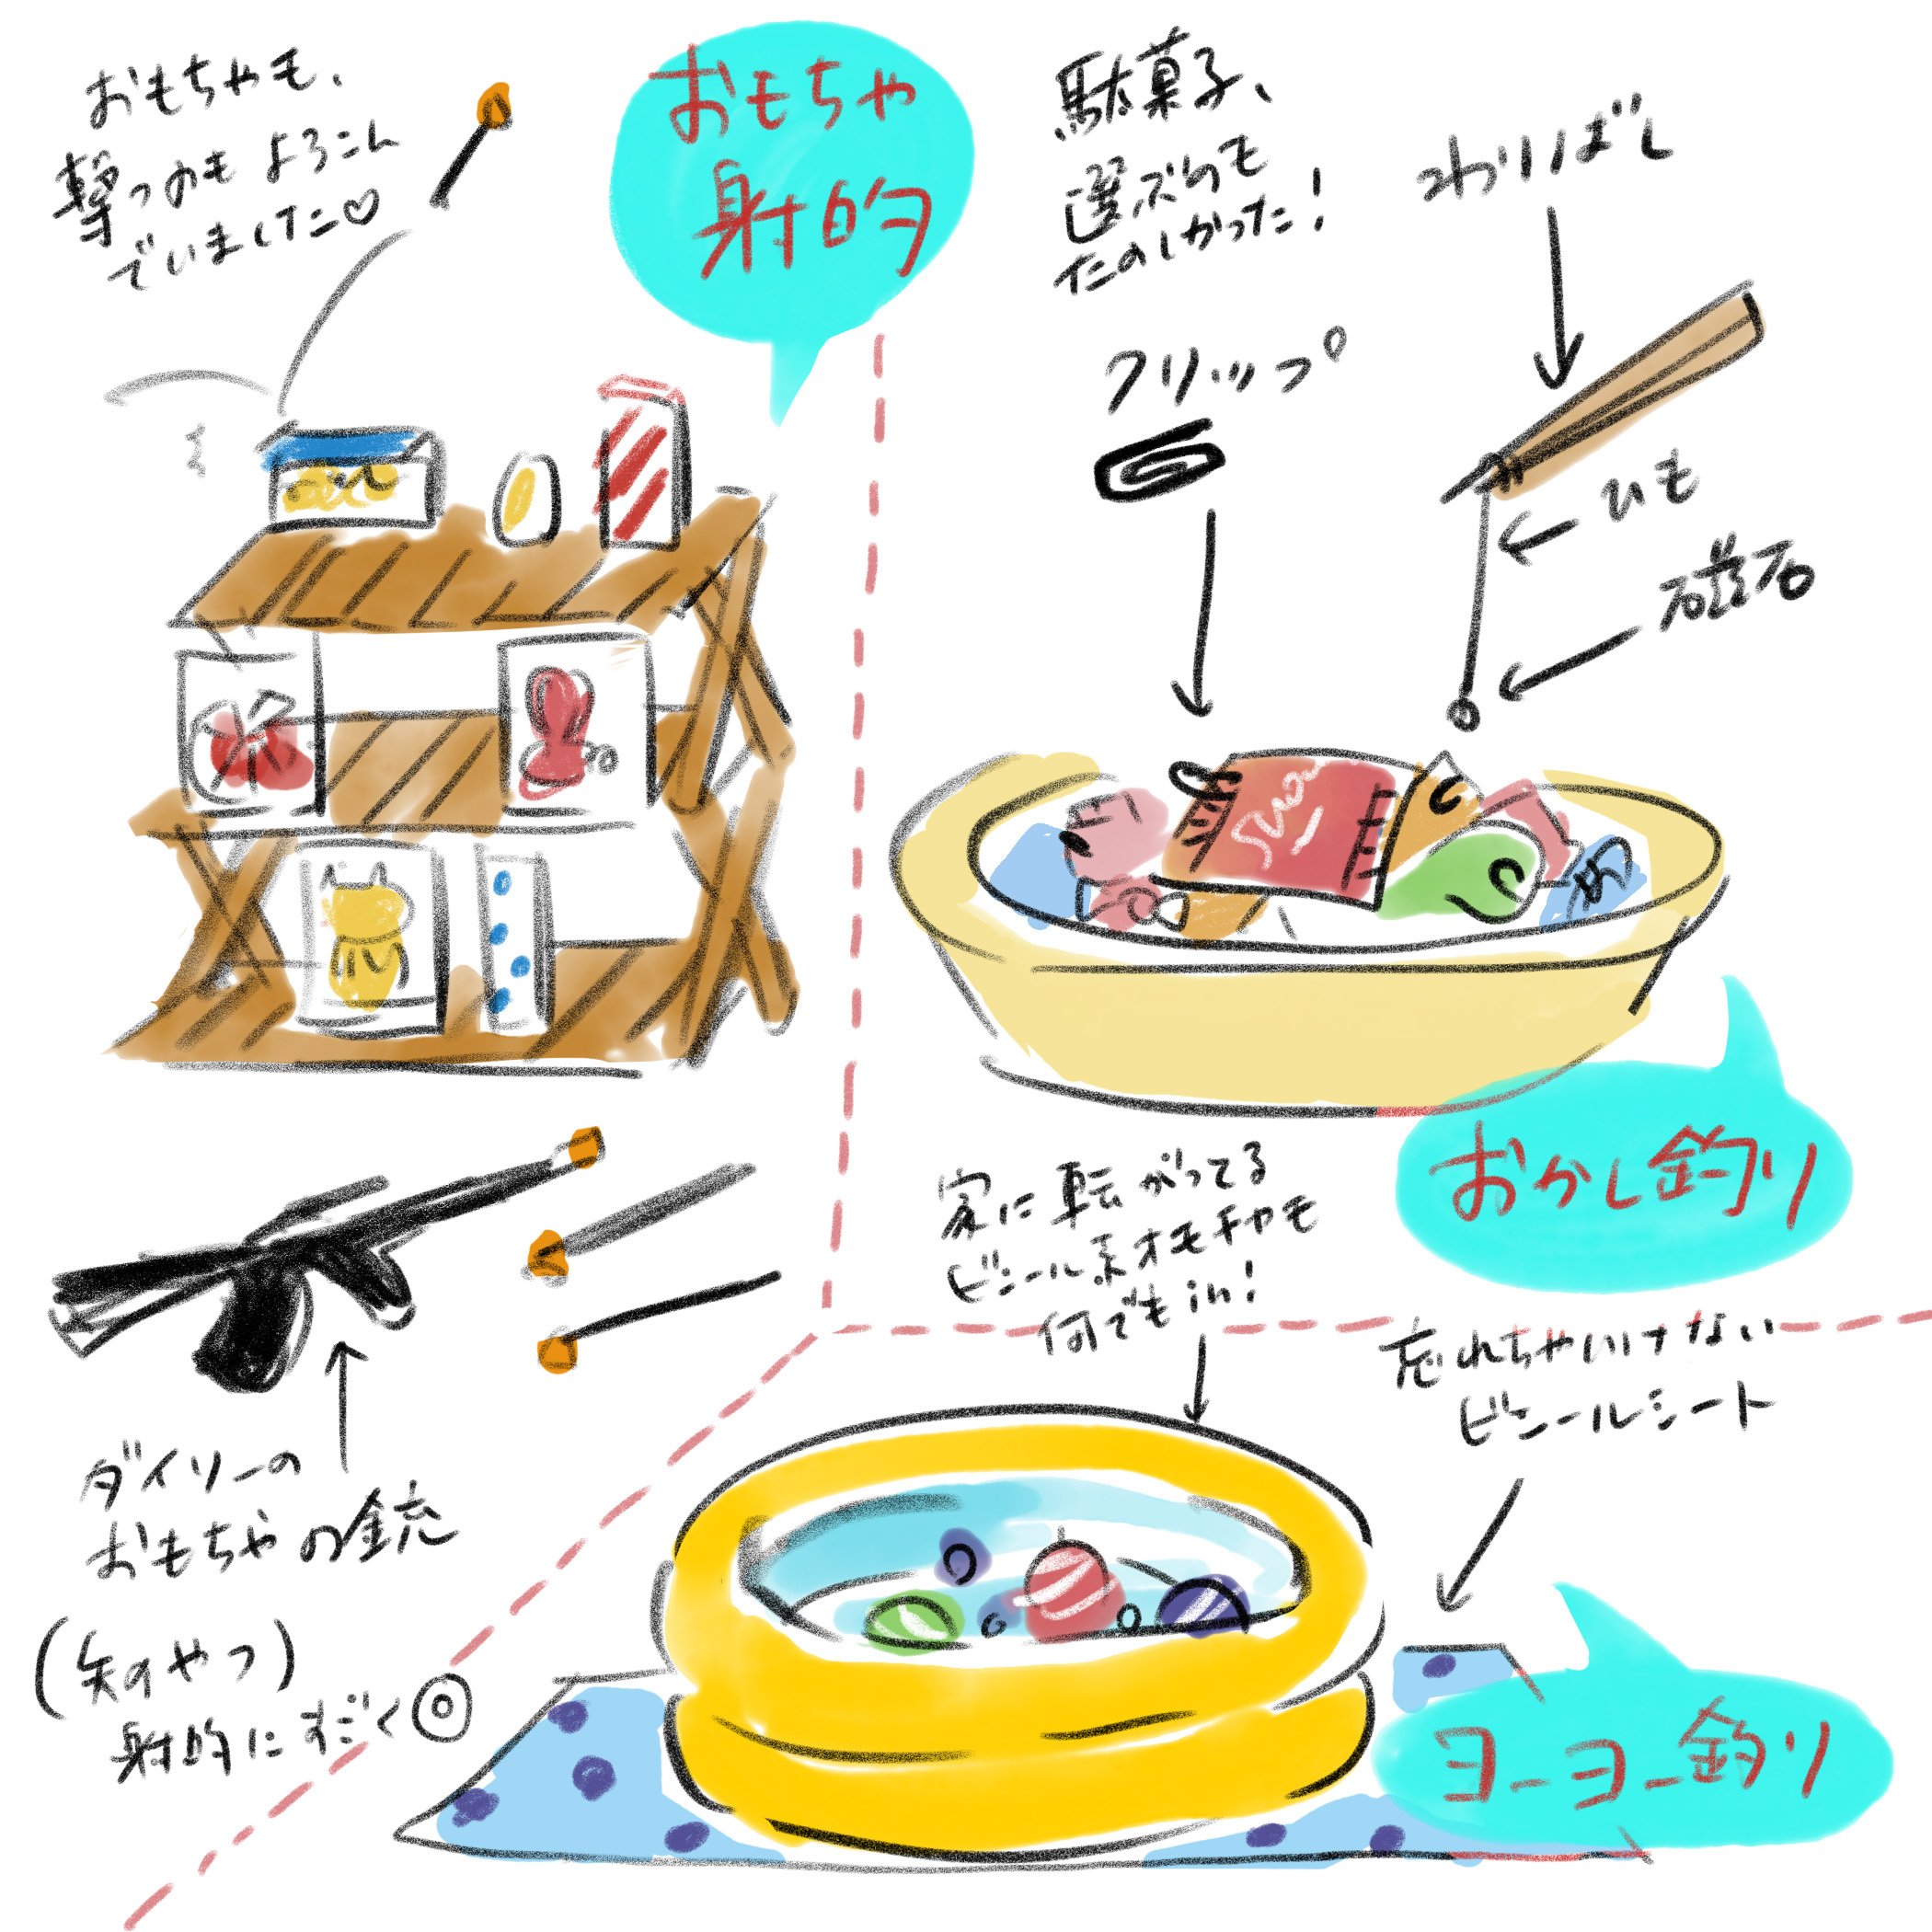 おもちゃも、
撃つのもよろこん
でいました♡
おもちゃ
射的
ダイソーの
おもちゃの銃
(矢のやつ)
射的にすごく◎
駄菓子、
選ぶのも
たのしかった!
わりばし
クリップ
ひも
磁石
おかし釣り
家に転がってる
ビニール系オモチャも
何でもin!
忘れちゃいけない
ビニールシート
ヨーヨー釣り